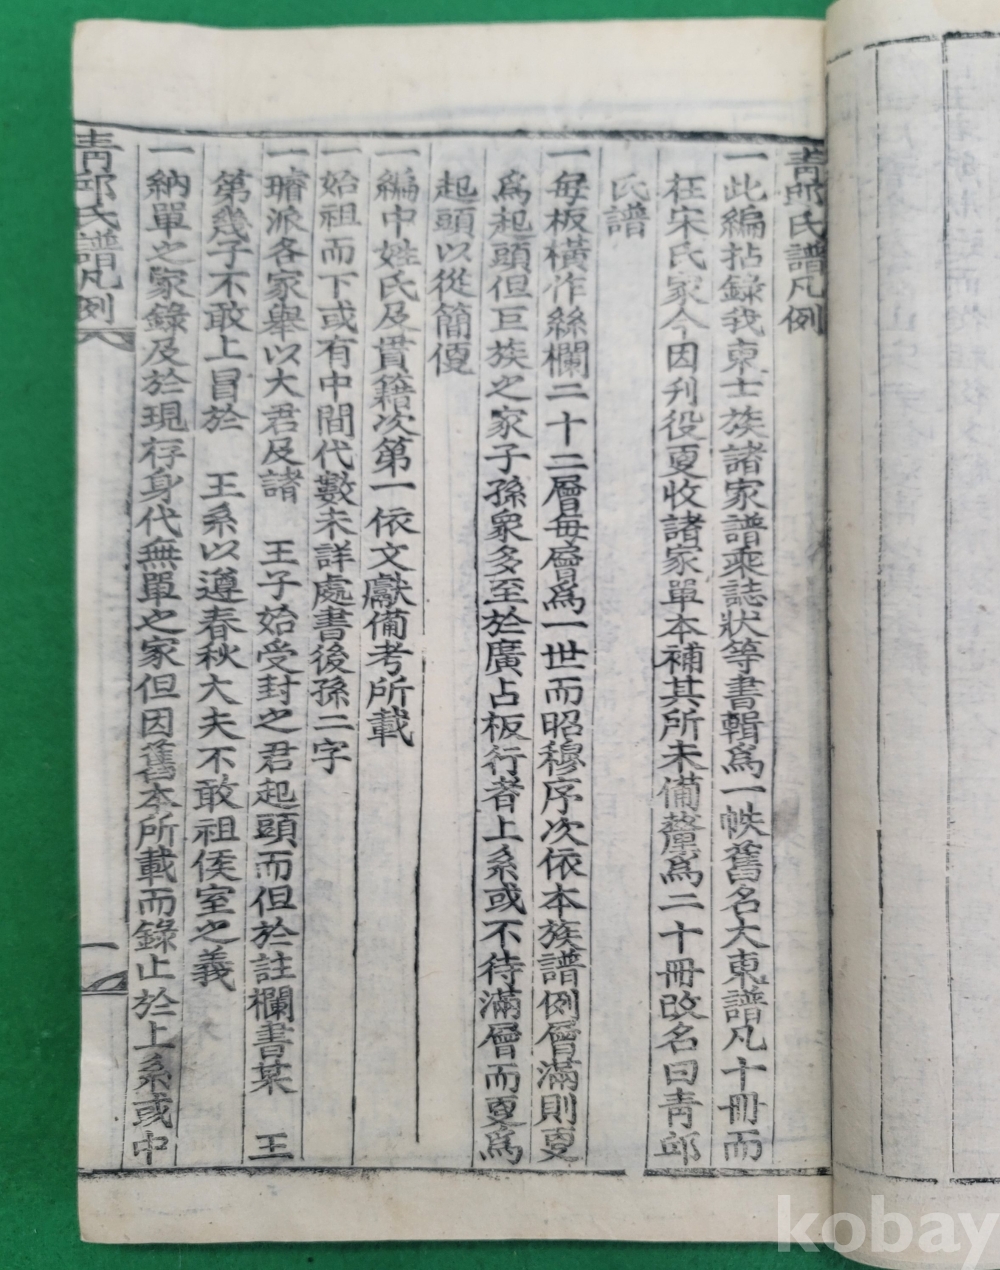 青邱氏譜凡例
一此編拈錄我東士族諸家譜乘誌狀等書輯爲一帙舊名大東譜凡十冊而
在宋氏家今因刋役更收諸家單本補其所未備釐爲二十冊改名曰靑邱
氏譜
一每板橫作絲欄二十二層每層爲一世而昭穆序次依本族譜例層滿則更
爲起頭但巨族之家子孫衆多至於廣占板行者上系或不待滿層而更爲
起頭以從簡便
一編中姓氏及貫籍次第一依文獻備考所載
一始祖而下或有中間代數未詳處書後孫二字
一璿派各家擧以大君及諸 王子始受封之君起頭而但於註欄書某 王
第幾子不敢上冒於 王系以遵春秋大夫不敢祖侯室之義
一納單之家錄及於現存身代無單之家但因舊本所載而錄止於上系或中
靑邱氏譜凡例
一
kobay